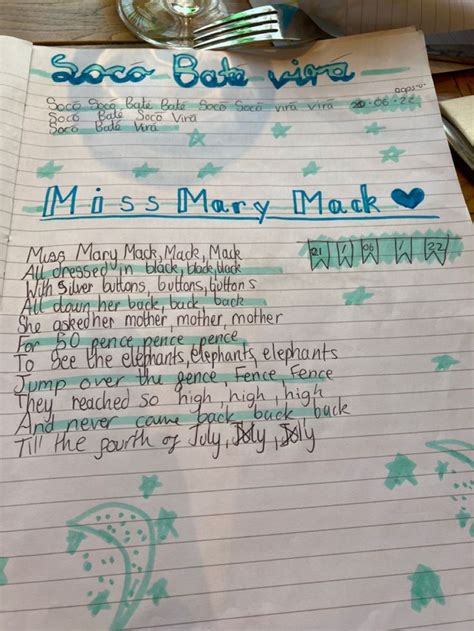 Socó Baté virá
Socó Socó Baté Baté Socó Socó virá virá
oops
20.06.22
Socó Baté Socó Virá
Socó Baté Virá
Miss Mary Mack
21 / 06 / 22
Miss Mary Mack, Mack, Mack
All dressed in black, black, black
With Silver buttons, buttons, buttons
All down her back, back back
She asked her mother, mother, mother
For 50 pence pence, pence
To See the elephants, elephants, elephants
Jump over the gence, Fence, Fence
They reached so high, high, high
And never came back back back
Till the fourth of July, July, July